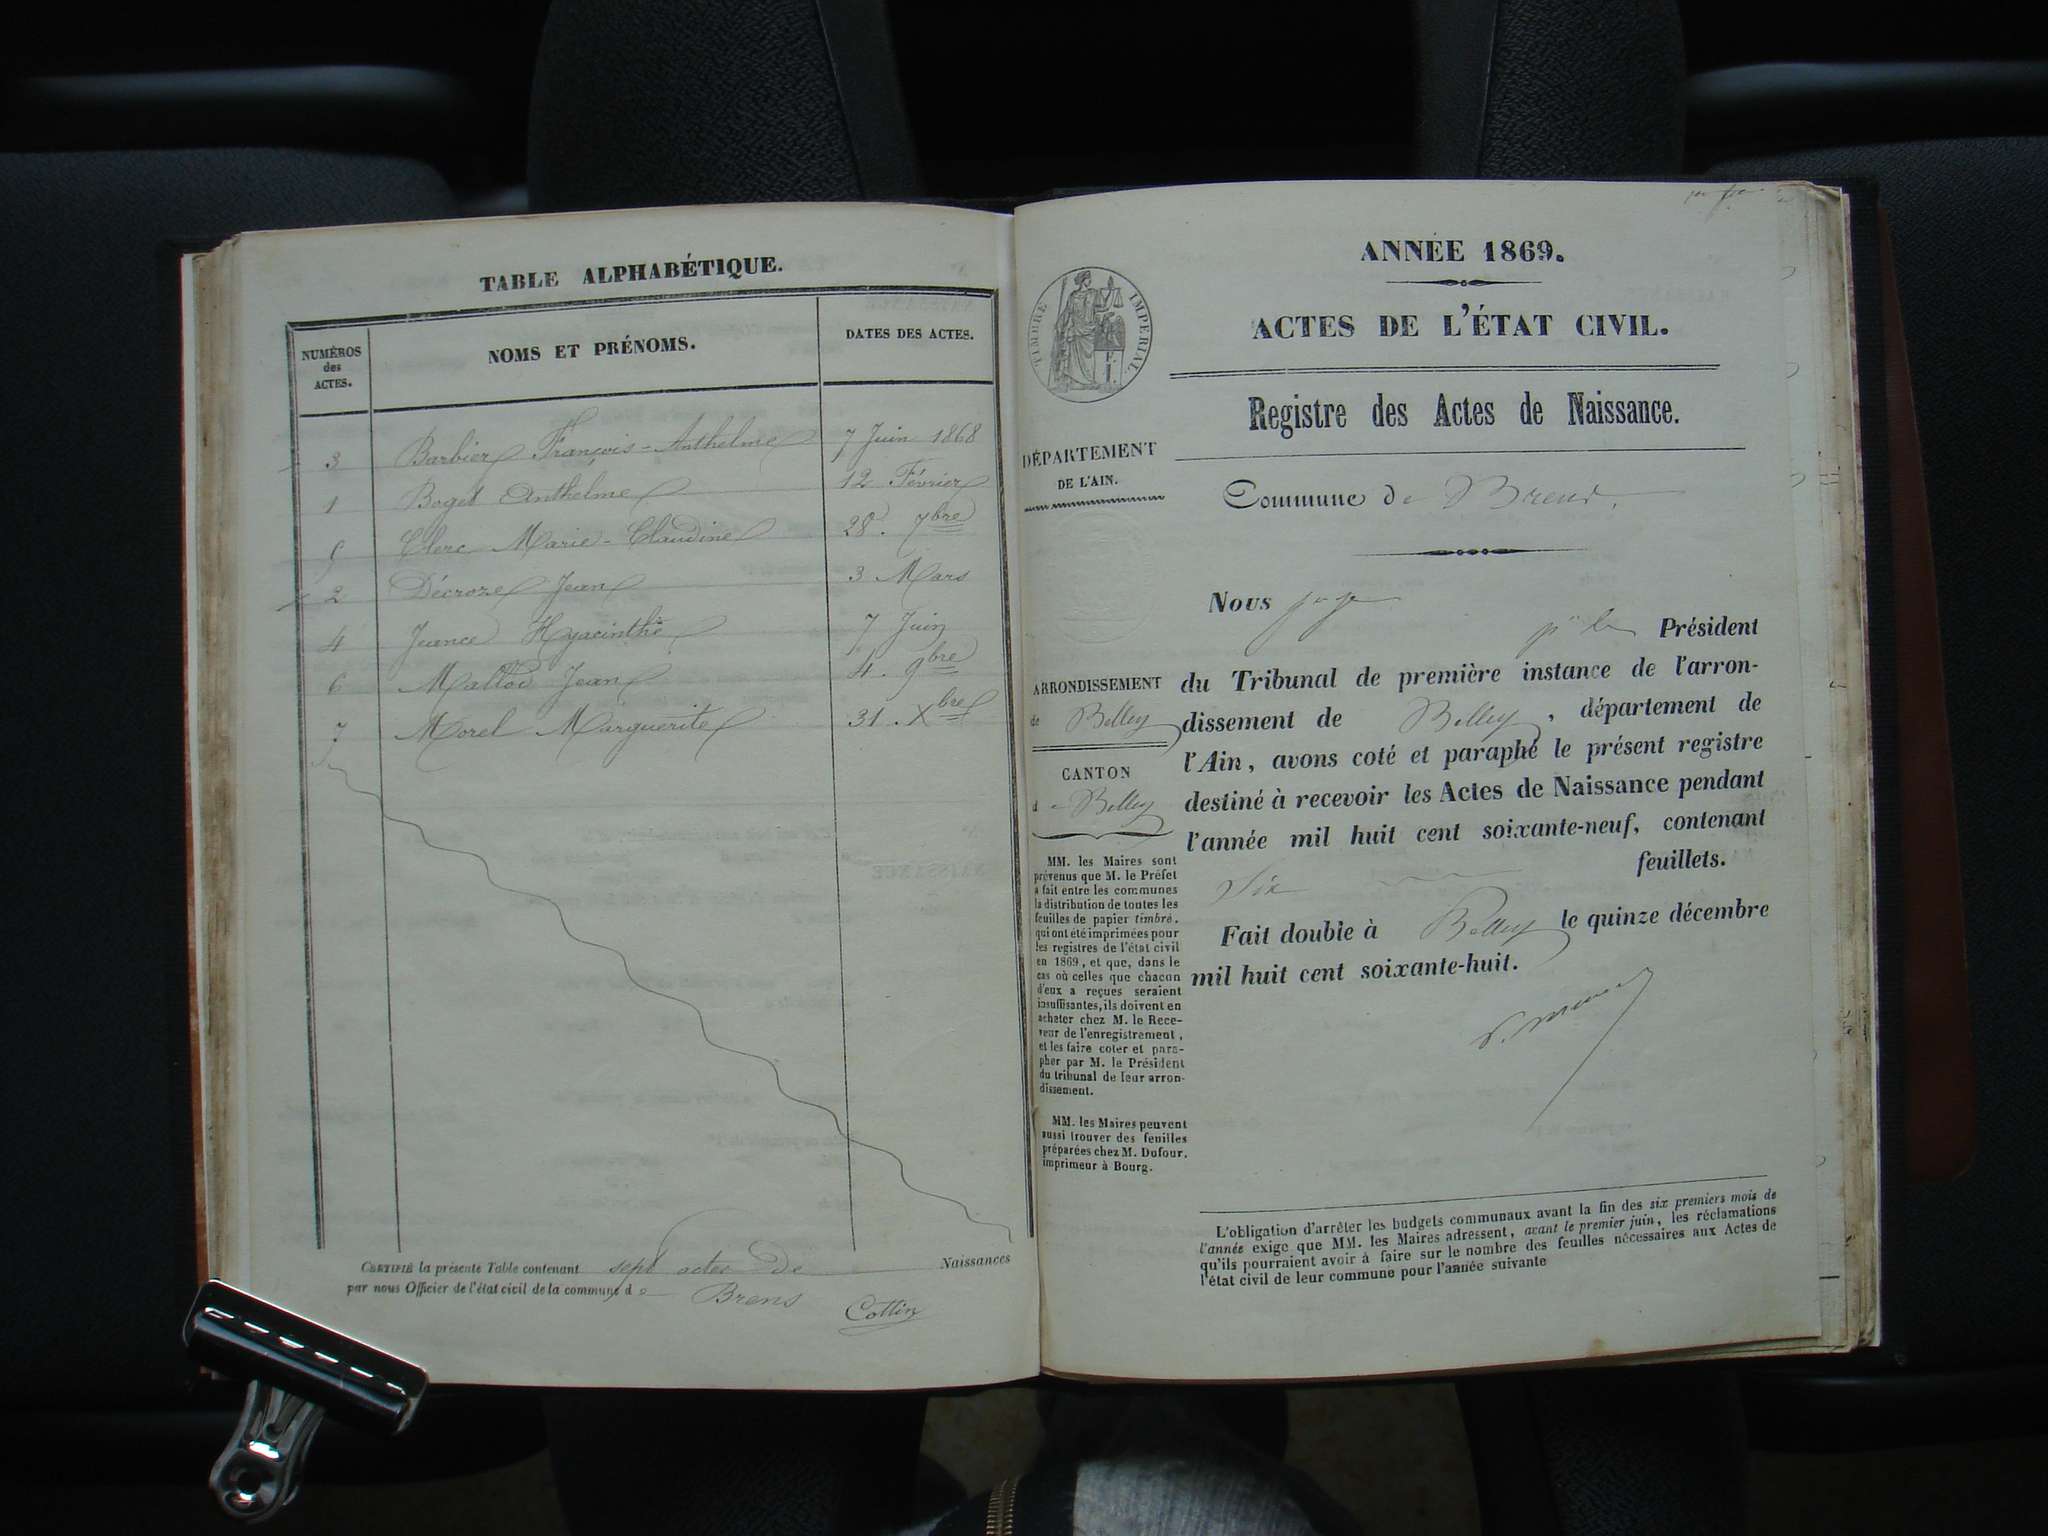 TABLE ALPHABÉTIQUE.
NUMÉROS
des
ACTES.
NOMS ET PRÉNOMS.
DATES DES ACTES.
3 Barbier François-Anthelme 7 Juin 1868
1 Boget Anthelme 12 Février
5 Clerc Marie-Claudine 28. 7bre
2 Décroze Jean 3 Mars
4 Jeance Hyacinthe 7 Juin
6 Mallod Jean 4. 9bre
7 Morel Marguerite 31. Xbre
CERTIFIÉ la présente Table contenant sept actes de Naissances
par nous Officier de l'état civil de la commune de Brens
Cottin
ANNÉE 1869.
ACTES DE L'ÉTAT CIVIL.
TIMBRE IMPERIAL
Registre des Actes de Naissance.
DÉPARTEMENT
DE L'AIN.
Commune de Brens.
Nous juge
pr le Président
ARRONDISSEMENT
de Belley
CANTON
de Belley
du Tribunal de première instance de l'arron-
dissement de Belley, département de
l'Ain, avons coté et paraphé le présent registre
destiné à recevoir les Actes de Naissance pendant
l'année mil huit cent soixante-neuf, contenant
six feuillets.
Fait double à Belley le quinze décembre
mil huit cent soixante-huit.
MM. les Maires sont
prévenus que M. le Préfet
a fait entre les communes
la distribution de toutes les
feuilles de papier timbré,
qui ont été imprimées pour
les registres de l'état civil
en 1869, et que, dans le
cas où celles que chacun
d'eux a reçues seraient
insuffisantes, ils doivent en
acheter chez M. le Rece-
veur de l'enregistrement,
et les faire coter et para-
pher par M. le Président
du tribunal de leur arron-
dissement.
MM. les Maires peuvent
aussi trouver des feuilles
préparées chez M. Dufour,
imprimeur à Bourg.
L'obligation d'arrêter les budgets communaux avant la fin des six premiers mois de
l'année exige que MM. les Maires adressent, avant le premier juin, les réclamations
qu'ils pourraient avoir à faire sur le nombre des feuilles nécessaires aux Actes de
l'état civil de leur commune pour l'année suivante